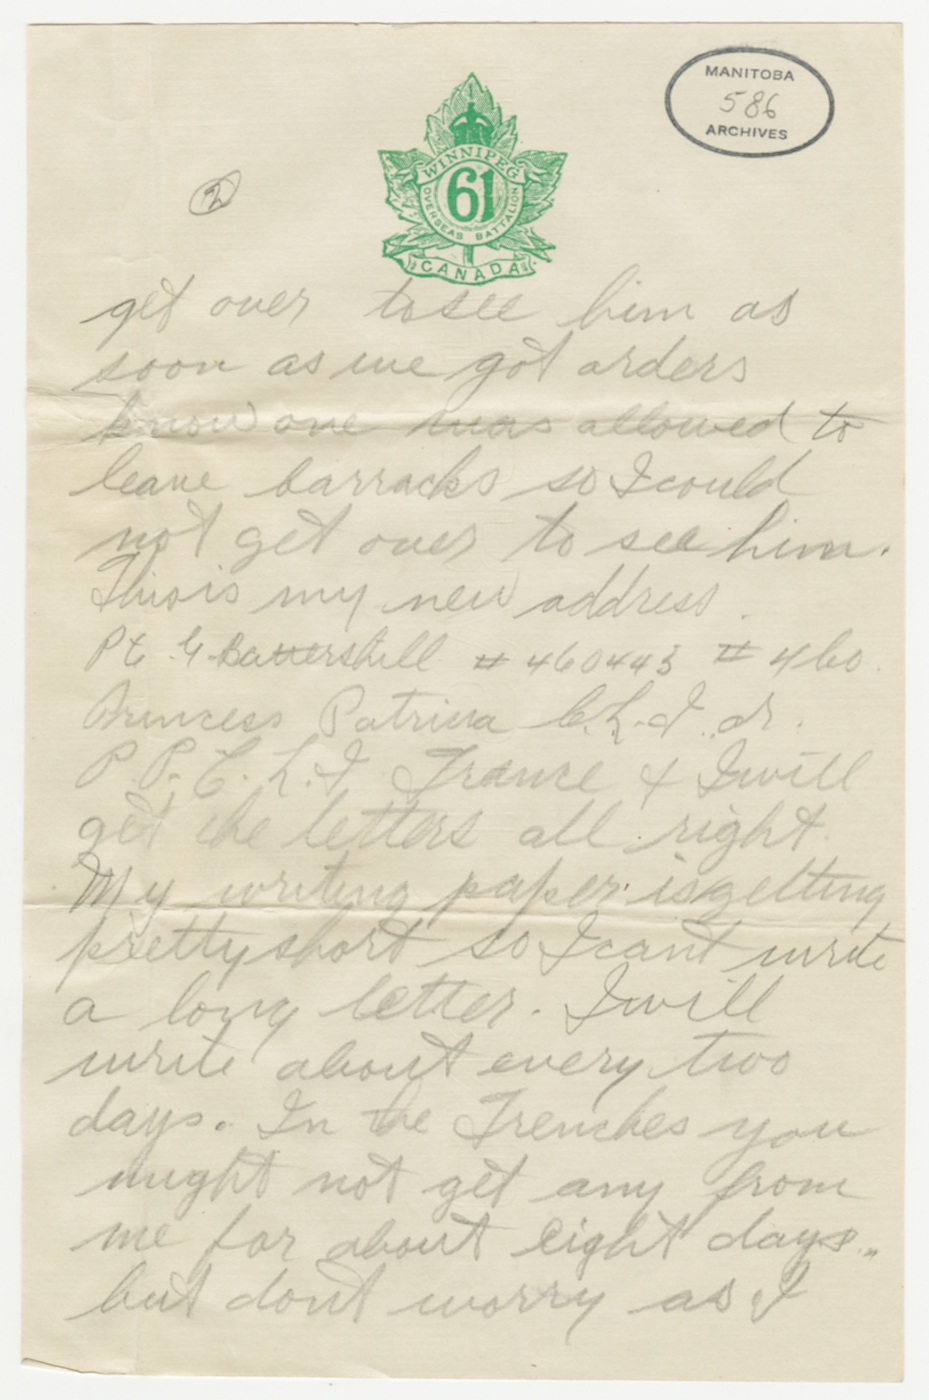 MANITOBA
586
ARCHIVES
2
WINNIPEG
61
OVERSEAS BATTALION
CANADA
get over to see him as
soon as we got orders
know one was allowed to
leave barracks so I could
not get over to see him.
This is my new address.
Pte G Battershill # 460443 # 460.
Princess Patricia C.L.I. or.
P.P.C.L.I. France & I will
get the letters all right.
My writing paper is getting
pretty short so I cant write
a long letter. I will
write about every two
days. In the Trenches you
might not get any from
me for about eight days..
but dont worry as I